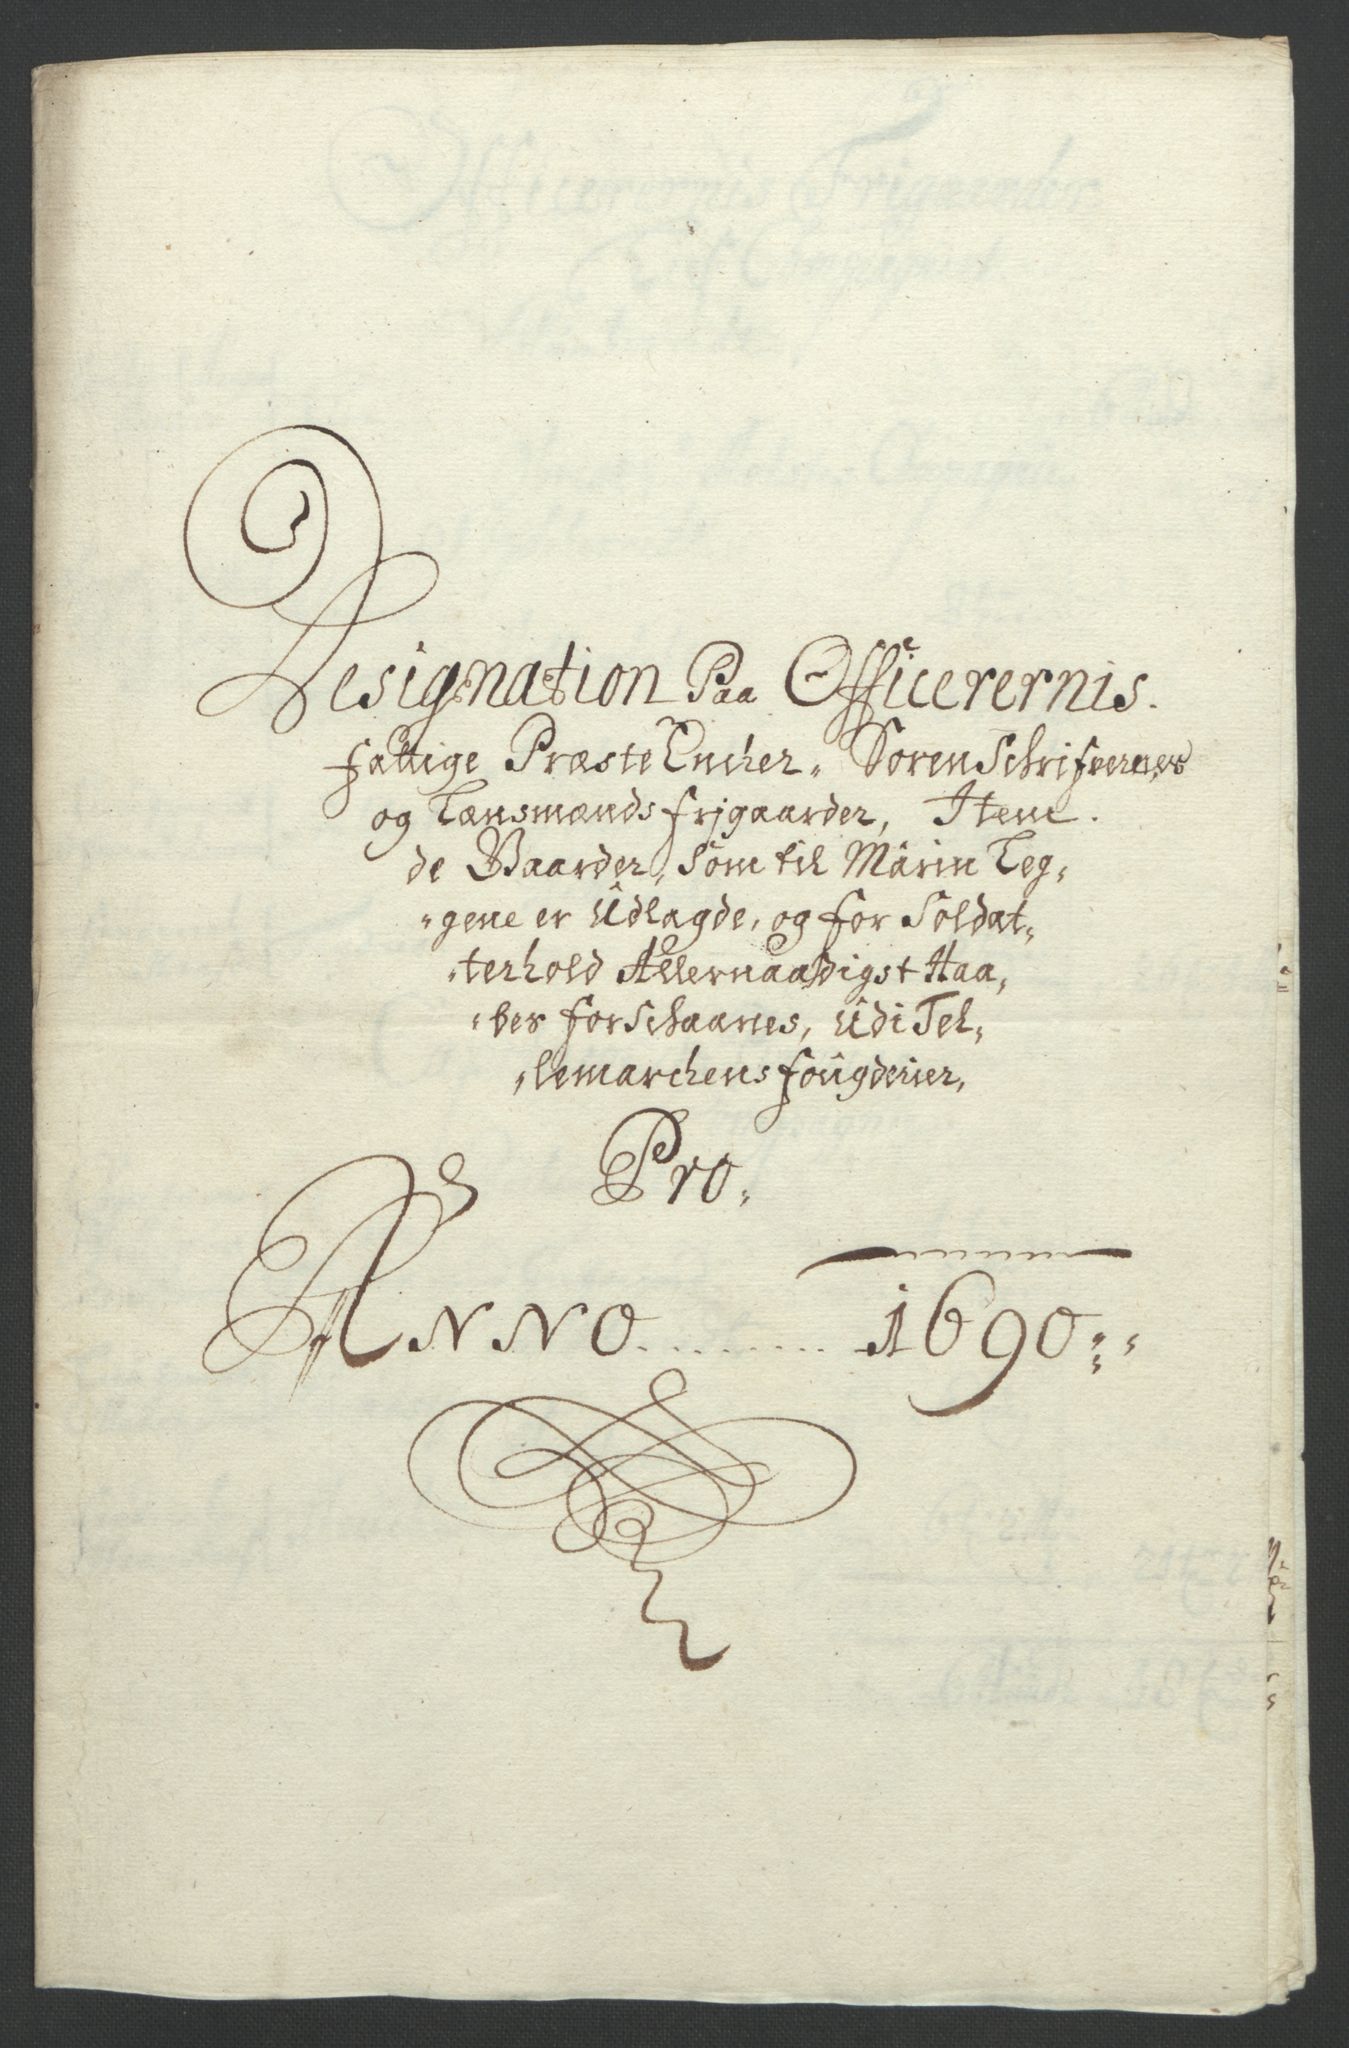 Designation Paa Officerernis.
fattige Præste Encker, Sorenschrifvernes
og Lænsmænds frjgaarder, Item.
de Gaarder, som til Marin Leg,
,gene er Udlagde, og for Soldat,
,terhold Allernaadigst Haa,
,bes forschaanes, Udi Tel,
,lemarchens fougderier,
Pro,
Anno ......... 1690:,